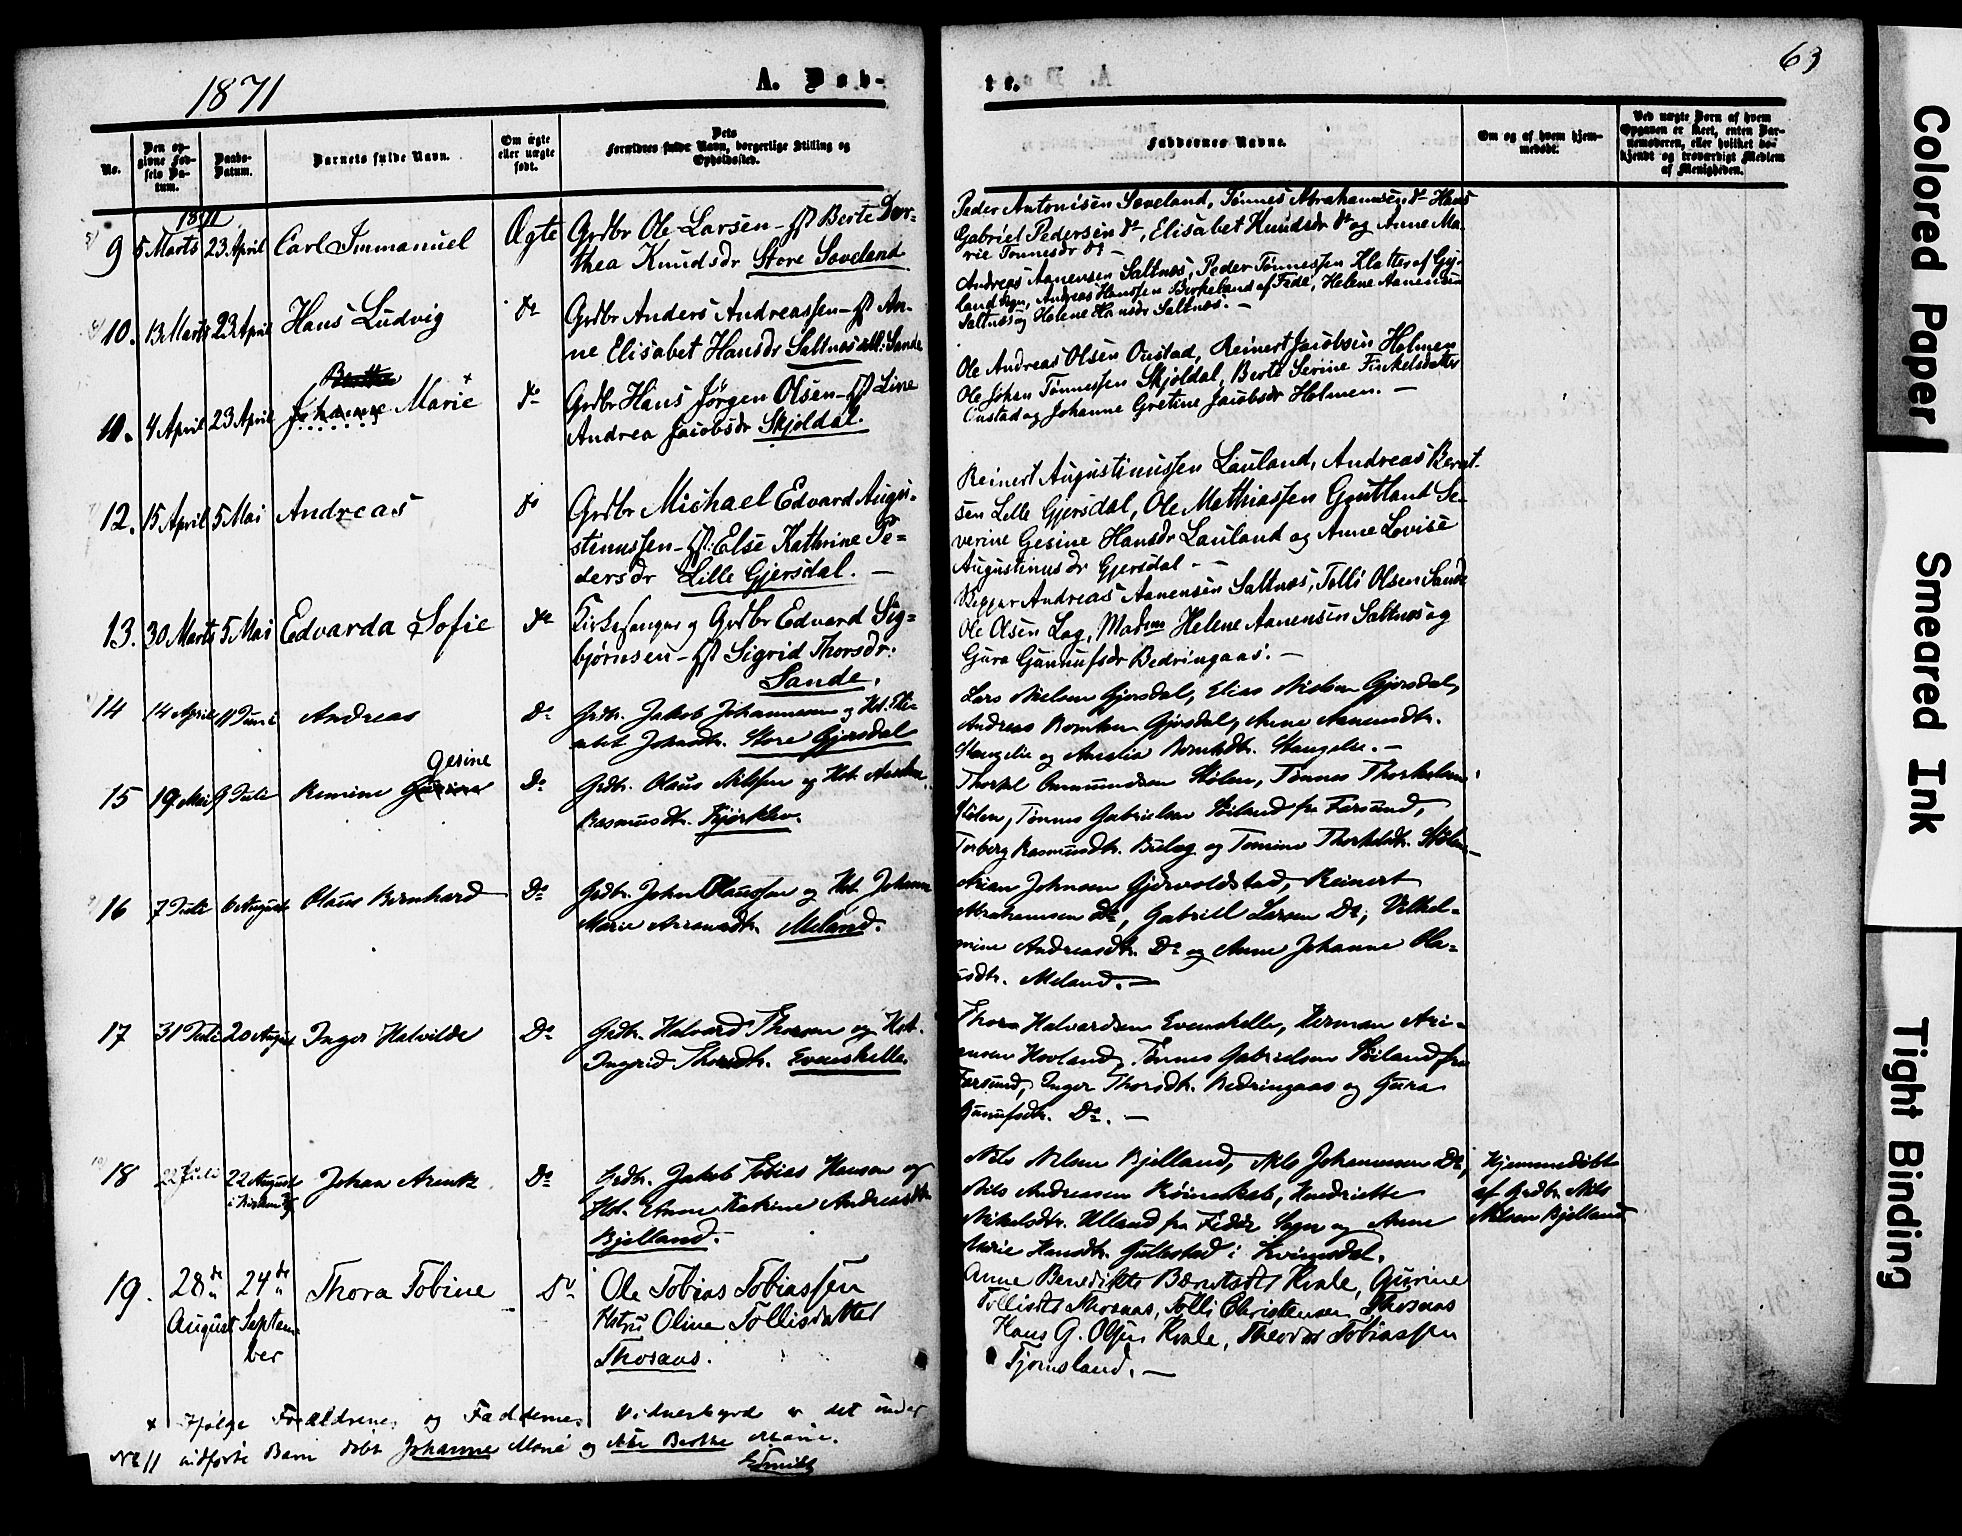 1871
A. Døb-
te.
63
No.
Den op-
givne Fød-
sels Da-
tum.
Daabs-
Datum.
Barnets fulde Navn.
Om ægte
eller uægte
født.
Dets
Forældres fulde Navn, borgerlige Stilling og
Opholdssted.
Faddernes Navne.
Om og af hvem hjem-
medøbt.
Ved uægte Børn af hvem
Opgaven er skeet, enten Bar-
nemoderen, eller hvilket be-
kjendt og troværdigt Medlem
af Menigheden.
1871
9 5 Marts 23 April Carl Immanuel Ægte Grdbr Ole Larsen - Hst Berte Dor-
thea Knudsdr Store Søveland
Peder Antonisen Søveland, Tønnes Abrahamsen do Hans
Gabriel Pedersen do, Elisabet Knudsdr do og Anne Ma-
rie Tønnesdr do -
10. 13 Marts 23 April Hans Ludvig do Grdbr Anders Andreassen - Hst An-
ne Elisabet Hansdr Saltnes Sande
Andreas Aanensen Saltnes, Peder Tønnessen Klatter af Gy-
land Sogn, Andreas Hanssen Birkeland af Fede, Helene Aanensen
Saltnes og Helene Hansdr Saltnes. -
Berthe
11. 4 April 23 April Johanne Marie x do Grdbr Hans Jørgen Olsen - Hst Line
Andrea Jacobsdr Skjoldal.
Ole Andreas Olsen Oustad, Reinert Jacobsen Holmen
Ole Johan Tønnessen Skjoldal, Berte Serine Finkelsdatter
Oustad og Johanne Gretine Jacobsdr Holmen. -
12. 15 April 5 Mai Andreas do Grdbr Michael Edvard Augu-
stinussen - Hst: Else Kathrine Pe-
dersdr Lille Gjersdal. -
Reinert Augustinussen Lauland, Andreas Bernt-
sen Lille Gjersdal, Ole Mathiassen Gautland Se-
verine Gesine Hansdr Lauland og Anne Lovise
Augustinusdr Gjersdal - -
13. 30 Marts 5 Mai Edvarda Sofie do Kirkesanger og Grdbr Edvard Sig-
bjørnsen - Hst Sigrid Thorsdr.
Sande.
Andreas Aanensen Saltnes, Tolli Olsen Sande
Ole Olsen Log, Madme Helene Aanensen Saltnes og
Gura Gunnufsdr Bedringaas. -
14 14 April 11 Juni Andreas Do Grdbr. Jakob Johannesen og Hst.
Johnsdtr. Store Gjersdal
Lars Nielsen Gjersdal, Elias Nielsen Gjersdal,
Andreas Gjersdal, Anne Aanensdtr.
Stangelie og Amalia Berntsdtr. Stangelie. -
Gesine
15 19 Mai 9 Juli Remine Do Grdbr. Olaus Nilssen og Hst.
Rasmusdtr. Kjørklev.
Thorkel Ommundsen Stølen, Tønnes Thorkelsen
Stølen, Tønnes Gabrielsen Røiland fra Farsund,
Torberg Rasmusdtr. Buleg og Tomine Thorkelsdtr. Stølen -
16 7 Juli 6 August Olaus Bernhard Do Grdbr. John Olaussen og Hst. Johanne
Marie Meland.
Arian Johnsen Gjervoldstad, Reinert
Abrahamsen Do, Gabriel Larsen Do, Vilhel-
mine Andreasdtr. Do og Anne Johanne Ola-
usdtr. Meland. -
17 31 Juli 20 August Inger Halvilde Do Grdbr. Halvard Thorsen og Hst.
Ingrid Thorsdtr. Evenskelle.
Thore Halvardsen Evenskelle, Herman Ari-
ansen Hovland, Tønnes Gabrielsen Røiland fra
Farsund, Inger Thorsdtr. Bedringaas og Gura
Gunufsdtr. Do. -
18 22 Juli 22 August
i Kirken Johan Arenk Do Grdbr. Jakob Tobias Hansen og
Hst. Katrine Andreasdtr
Bjelland.
Nils Nilsen Bjelland, Nils Johannesen Do,
Nils Andreassen Røinskab, Hendriette
Nikelsdtr. Ulland fra Fede Sogn og Anne
Marie Hansdtr. Gullestad i Kvinesdal.
Hjemmedøbt
af Grdbr. Nils
Nilsen Bjelland
19. 28de
August 24de
Septem-
ber Thora Tobine Do Ole Tobias Tobiassen
Hstru Oline Tollisdatter
Thorsaas.
Anne Benedikte Berntsdt Kvale, Gurine
Tollisdt Thorsaas, Tolli Christensen Thorsaas
Hans G. Olsen Kvale, Theodor Tobiassen
Tjomsland. -
x Ifølge Forældrenes og Faddernes Vidnesbyrd er det under
No 11 indførte Barn døbt Johanne Marie og ikke Berthe Marie.
Smith
Colored Paper
Smeared Ink
Tight Binding